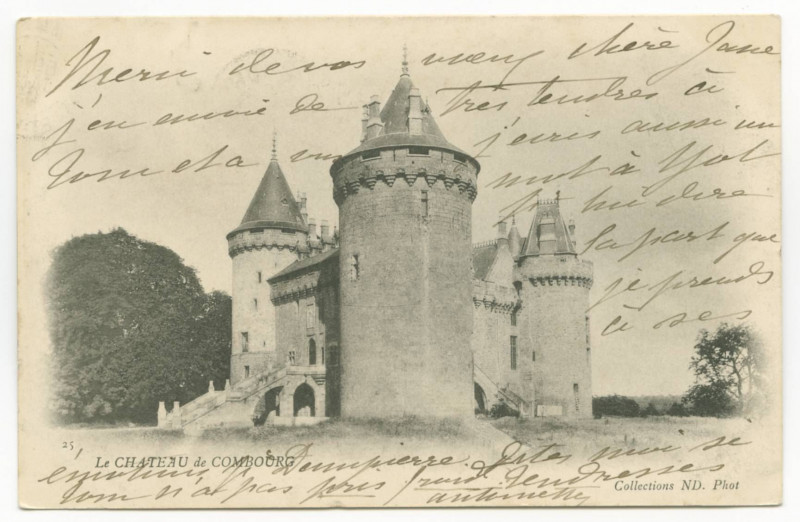 Merci de vos vœux chère Jane
j'en envoie de très tendres à
Tom et à j'écris aussi un
mot à Yot
lui dire
la part que
je prends
à ses
25
Le CHATEAU de COMBOURG
émotions Dampierre Dites moi se
Tom n'a pas pris froid Tendresses
Antoinette
Collections ND. Phot